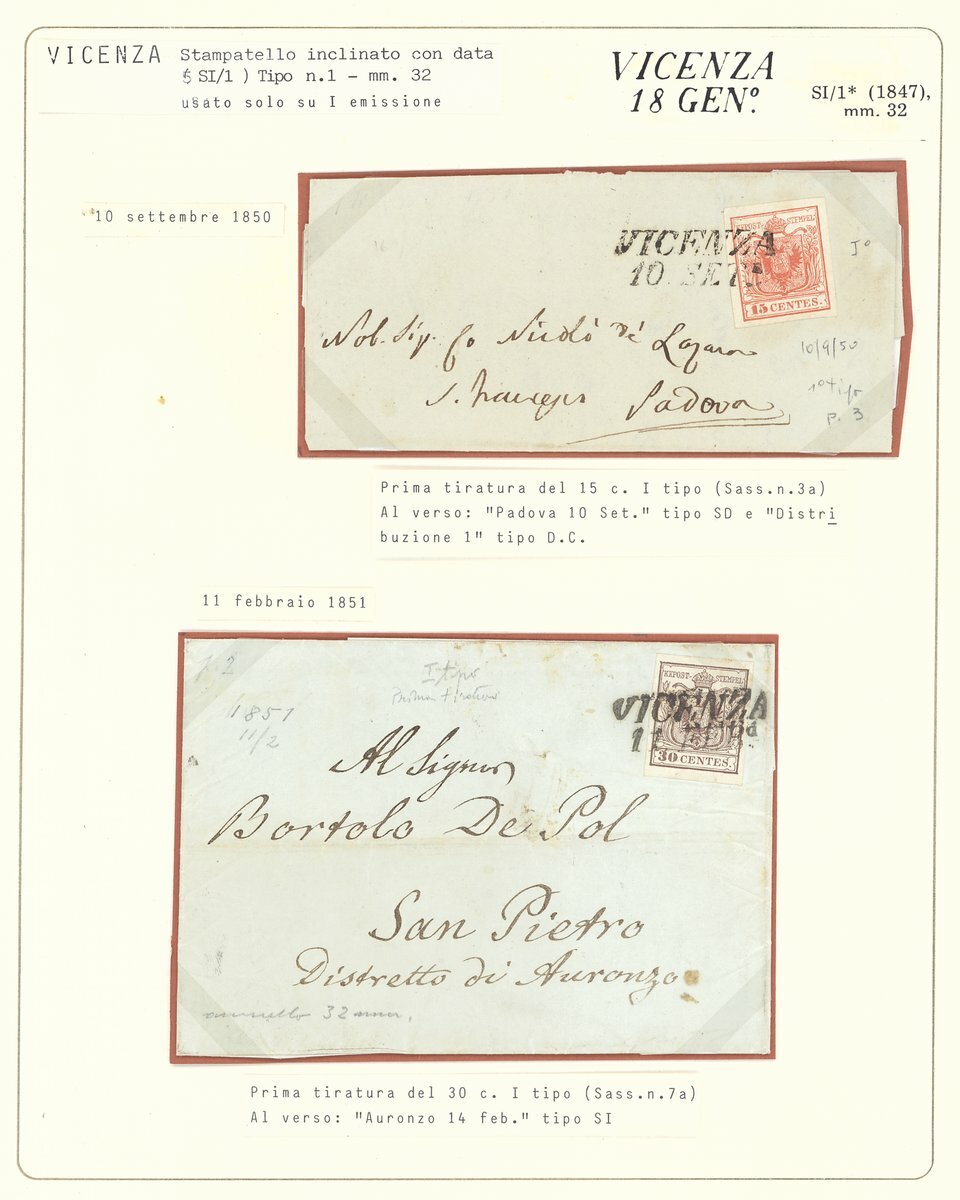 VICENZA Stampatello inclinato con data
( SI/1 ) Tipo n.1 - mm. 32
usato solo su I emissione
VICENZA
18 GENº.
SI/1* (1847),
mm. 32
10 settembre 1850
VICENZA
10 SET.
KKPOST-STEMPEL
15 CENTES.
Iº
Nob. Sig. Co Nicolò Dè Lazara
10/9/50
S. Padova
1º tipo
p. 3
Prima tiratura del 15 c. I tipo (Sass.n.3a)
Al verso: "Padova 10 Set." tipo SD e "Distri
buzione 1" tipo D.C.
11 febbraio 1851
p. 2
I tipo
prima tiratura
1851
11/2
KKPOST-STEMPEL
VICENZA
11 FEB
30 CENTES.
Al Signor
Bortolo De Pol
San Pietro
Distretto di Auronzo
annullo 32 mm.
Prima tiratura del 30 c. I tipo (Sass.n.7a)
Al verso: "Auronzo 14 feb." tipo SI